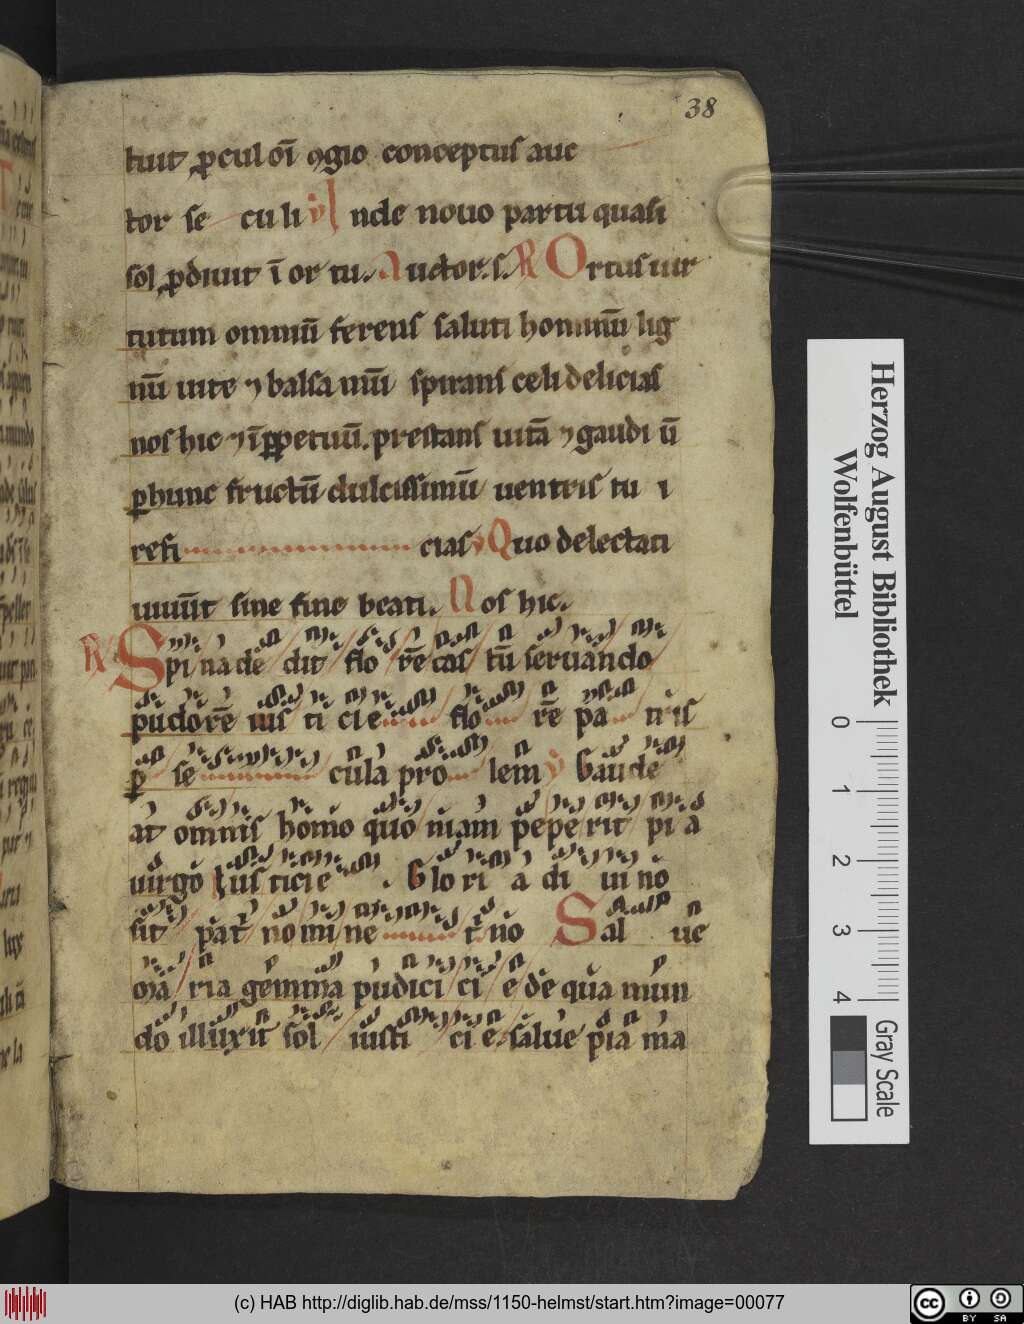 38
tuit ꝓcul oī ꝯgio conceptus auc
tor se culi ꝟ Inde nouo partu quasi
sol ꝓdiuit ī or tu. Auctor. s. R Ortus uir
tutum omniū ferens saluti hominū lig
nū uite ⁊ balsamūi spirans celi delicias
nos hic ⁊ īꝑpetuū. prestans uitā ⁊ gaudi ū
ꝑhunc fructū dulcissimū uentris tu i
refi cias ꝟ Quo delectati
uiuūt sine fine beati. Nos hic.
R Spi na de dit flo rē cas tū seruando
pudorē ius ti cie flo rē pa tris
ꝑ se cula pro lem ꝟ Gaude
at omnis homo quo niam pepe rit pia
uirgo Iusticie . Glo ri a di ui no
sit pat̄ no mi ne t̄ no Sal ue
ma ria gemma pudici ci e de qua mun
do illuxit sol iusti ci e. salue pia ma
Herzog August Bibliothek
Wolfenbüttel
0 1 2 3 4
Gray Scale
(c) HAB http://diglib.hab.de/mss/1150-helmst/start.htm?image=00077
cc BY SA